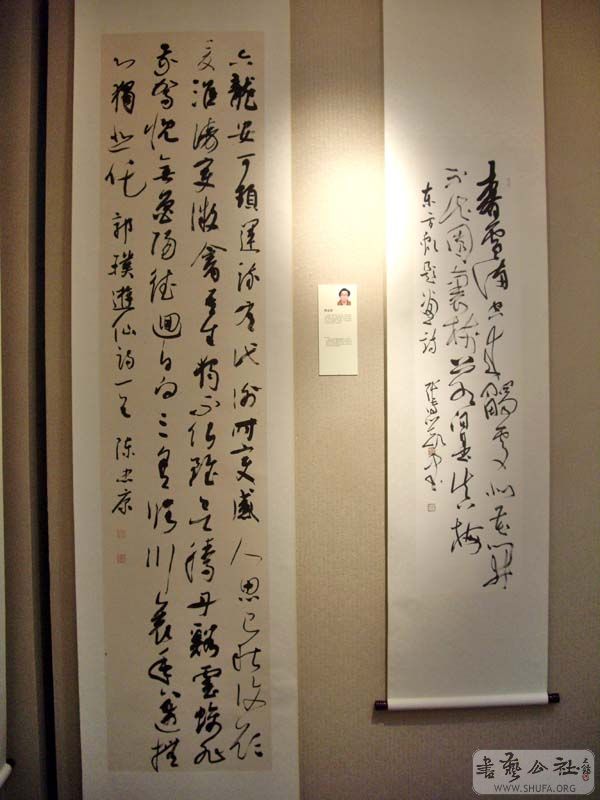 春雪滿空来觸處似花開
不知園裏樹若个是真梅
东方虬题畫詩
六龍安可頓運流有代謝時变感人思已秋復願
夏淮海变微禽吾生獨不化雖欲騰丹谿雲螭非
我駕愧無魯陽德迴日向三舍臨川哀年邁撫
心獨悲吒 郭璞遊仙詩一首 陈忠康
書藝公社
WWW.SHUFA.ORG